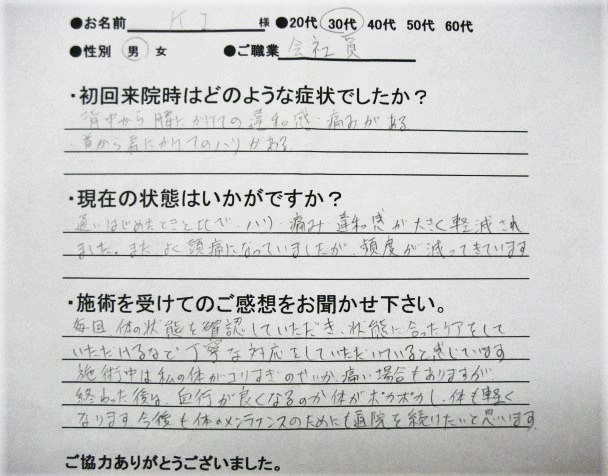 ●お名前 K I 様 ●20代 30代 40代 50代 60代
●性別 男 女 ●ご職業 会社員
・初回来院時はどのような症状でしたか？
背中から腰にかけての違和感・痛みがある
首から肩にかけてのハリがある
・現在の状態はいかがですか？
通いはじめたときと比べ、ハリ・痛み・違和感が大きく軽減され
ました。また よく頭痛になっていましたが、頻度が減ってきています
・施術を受けてのご感想をお聞かせ下さい。
毎回 体の状態を確認していただき、状態に合ったケアをして
いただけるなど丁寧な対応をしていただいていると感じています
施術中は私の体がコリすぎのせいか、痛い場合もありますが
終わった後は、血行が良くなるのか体がポカポカし、体も軽く
なります 今後も体のメンテナンスのためにも通院を続けたいと思います
ご協力ありがとうございました。